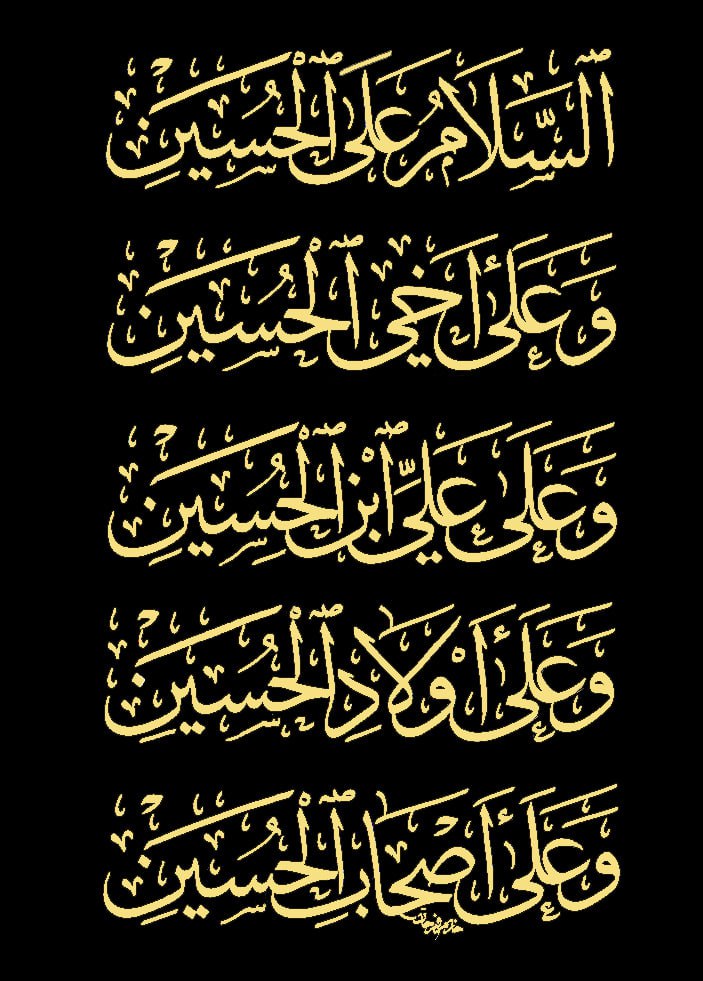 ٱلسَّلَامُ عَلَى ٱلْحُسَيْنِ
وَعَلَىٰ أَخِي ٱلْحُسَيْنِ
وَعَلَى عَلِيِّ ٱبْنِ ٱلْحُسَيْنِ
وَعَلَىٰ أَوْلَادِ ٱلْحُسَيْنِ
وَعَلَىٰ أَصْحَابِ ٱلْحُسَيْنِ